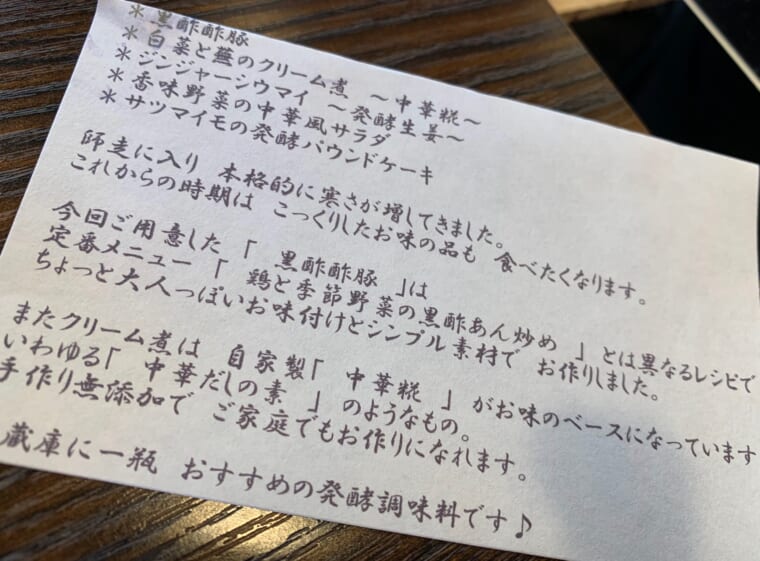 ＊黒酢酢豚
＊白菜と蕪のクリーム煮 ～中華糀～
＊ジンジャーシウマイ ～発酵生姜～
＊香味野菜の中華風サラダ
＊サツマイモの発酵パウンドケーキ
師走に入り 本格的に寒さが増してきました。
これからの時期は こっくりしたお味の品も 食べたくなります。
今回ご用意した「 黒酢酢豚 」は
定番メニュー「 鶏と季節野菜の黒酢あん炒め 」とは異なるレシピで
ちょっと大人っぽいお味付けとシンプル素材で お作りしました。
またクリーム煮は 自家製「 中華糀 」がお味のベースになっています
いわゆる「 中華だしの素 」のようなもの。
手作り無添加で ご家庭でもお作りになれます。
蔵庫に一瓶 おすすめの発酵調味料です♪